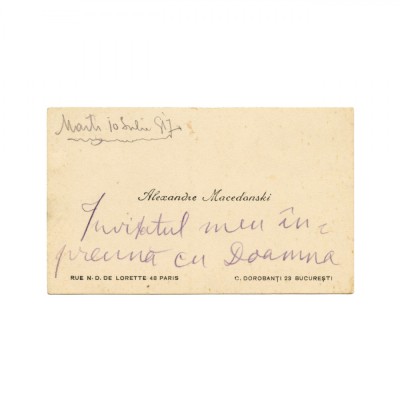 Marti 10 Iulie 917
Alexandre Macedonski
Invitatul meu în=
preună cu Doamna
RUE N-D. DE LORETTE 48 PARIS
C. DOROBANȚI 23 BUCUREȘTI